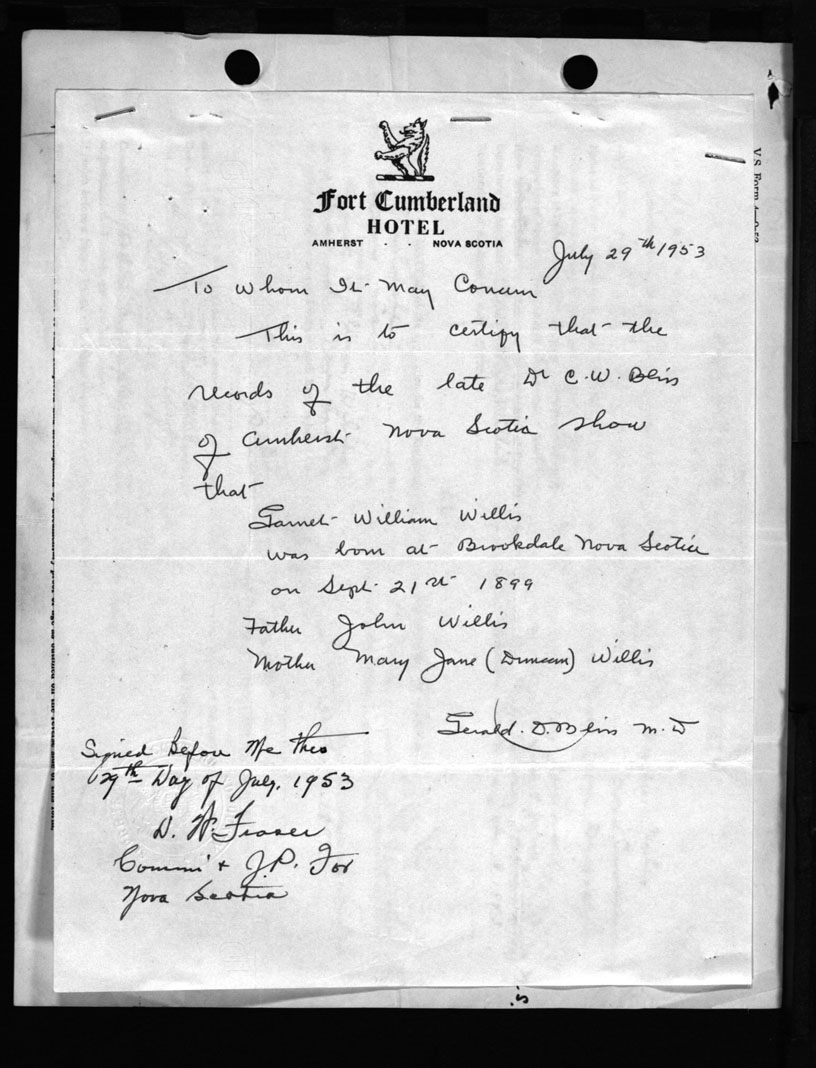 Fort Cumberland
HOTEL
AMHERST · · NOVA SCOTIA
July 29th 1953
To Whom It May Concern
This is to certify that the
records of the late Dr C. W. Bliss
of Amherst Nova Scotia show
that
Garnet William Willis
was born at Brookdale Nova Scotia
on Sept. 21st 1899
Father John Willis
Mother Mary Jane (Duncan) Willis
Gerald. D. Bliss M. D
Signed Before Me this
29th Day of July. 1953
D. W. Fraser
Commi' & J.P. For
Nova Scotia
V.S. Form